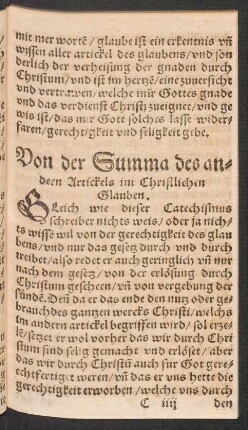 mit mer wortẽ / glaube ist ein erkentnis vñ
wissen aller artickel des glaubens / vnd son
derlich der verheisung der gnaden durch
Christum / vnd ist im hertzẽ / eine zuuersicht
vnd vertrawen / welche mir Gottes gnade
vnd das verdienst Christi zueignet / vnd ge
wis ist / das mir Gott solches lasse wider-
faren / gerechtigkeit vnd seligkeit gebe.
Von der Summa des an-
dern Artickels im Christlichen
Glauben.
GLeich wie dieser Catechismus
schreiber nichts weis / oder ja nich-
ts wissẽ wil von der gerechtigkeit des glau
bens / vnd nur das gesetz durch vnd durch
treibet / also redet er auch geringlich vñ nur
nach dem gesetz / von der erlösung durch
Christum geschehen / vñ von vergebung der
sünde. Deñ da er das ende den nutz oder ge-
brauch des gantzen wercks Christi / welchs
im andern artickel begriffen wird / sol erze-
lẽ / setzet er wol vorher das wir durch Chri
stum sind selig gemacht vnd erlöset / aber
das wir durch Christũ auch für Got gere-
chtfertiget weren / vñ das er vns hette die
gerechtigkeit erworben / welche vns durch
C iiij den